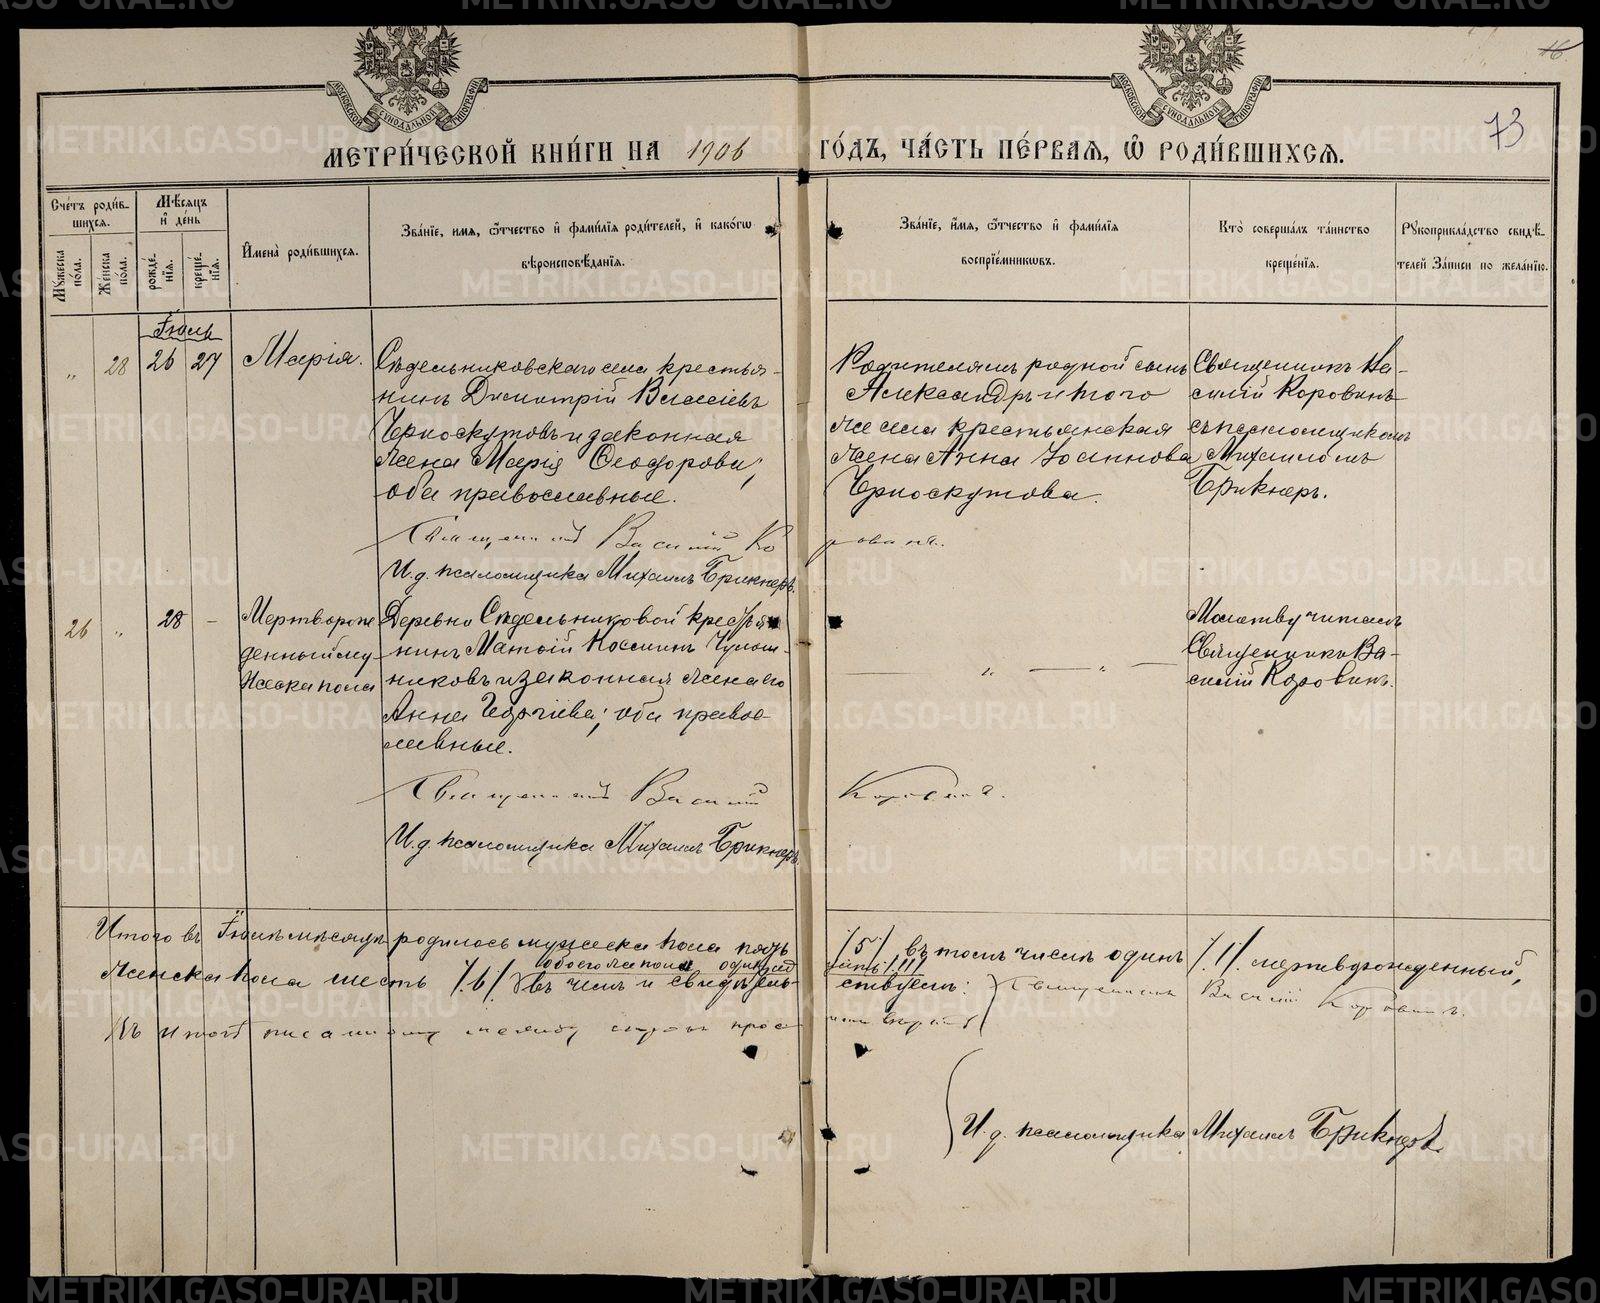 16
73
МЕТРИ́ЧЕСКОЙ КНИ́ГИ НА 1906 ГО́ДЪ, ЧА́СТЬ ПЕ́РВАЯ, Ѡ РОДИ́ВШИХСЯ.
Сче́тъ роди́в-
шихся.
Му́жеска по́ла.
Же́нска по́ла.
Мѣ́сяцъ и де́нь
рожде́-
нїя.
креще́-
нїя.
И҆мена̀ роди́вшихся.
Зва́нїе, имя, ѻ҆́тчество и҆ фами́лїя роди́телей, и҆ како́гѡ
вѣроисповѣ́данїя.
Зва́нїе, и҆́мя, ѻ҆́тчество и҆ фами́лїя
воспрїе́мниковъ.
Кто̀ соверша́лъ та́инство
креще́нїя.
Рꙋкоприкла́дство свидѣ́-
телей за́писи по жела́нїю.
Іюль
" 28 26 27 Марія.
Сѣдельниковскаго села крестья-
нинъ Димитрій Василіевъ
Черноскутовъ и законная
жена Марія Ѳеодорова,
оба православные.
Родителямъ родной сынъ
Александръ и того
же села крестьянская
жена Анна Іоаннова
Черноскутова.
Священникъ Ва-
силій Коровинъ
съ псаломщикомъ
Михаиломъ
Брикнеръ.
Священникъ Василій Коровинъ.
И. д. псаломщика Михаилъ Брикнеръ.
26 " 28 -
Мертворож
денный му-
жеска пола
Деревни Сѣдельниковой крестья
нинъ Матѳій Космин
никовъ и законная жена его
Анна оба право-
славные.
- " - " -
Молитву читалъ
Священникъ Ва-
силій Коровинъ.
Священникъ Василій Коровинъ.
И. д. псаломщика Михаилъ Брикнеръ
Итого въ Іюлѣ мѣсяцѣ родилось мужеска пола пять /5/ въ томъ числѣ одинъ /1/. мертворожденный,
обоего же пола одинад цать /11/
женска пола шесть /6/ въ чемъ и свидѣтель ствуемъ: Священникъ Василій Коровинъ.
Къ итогѣ писанному между строкъ
И. д. псаломщика Михаилъ Брикнеръ